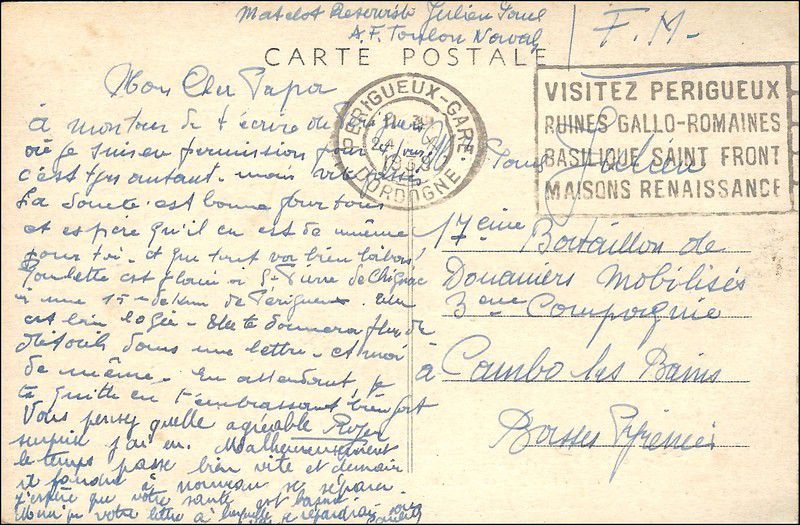 Matelot Reserviste Julien
A.F. Toulon Naval
F.M.
CARTE POSTALE
PERIGUEUX-GARE
DORDOGNE
VISITEZ PERIGUEUX
RUINES GALLO-ROMAINES
BASILIQUE SAINT FRONT
MAISONS RENAISSANCE
Mon Cher Papa
à mon tour de t'écrire de
où je suis en permission pour
c'est autant. mais vite
La Santé est bonne pour tous
et espère qu'il en est de même
pour toi. et que tout va bien
Poulette est à St Pierre de Chignac
à une 15 de Km de Périgueux. Elle
est bien logée. Elle te donnera plus de
détails dans une lettre. et moi
de même. En attendant, je
te quitte en t'embrassant bien fort
Roger
Vous pensez quelle agréable
surprise j'ai eu. Malheureusement
le temps passe bien vite et demain
il faudra à nouveau se séparer.
J'espère que votre santé est bonne
votre lettre à laquelle je répondrai
Julien
17ème Bataillon de
Douaniers Mobilisés
3eme Compagnie
à Cambo les Bains
Basses Pyrénées